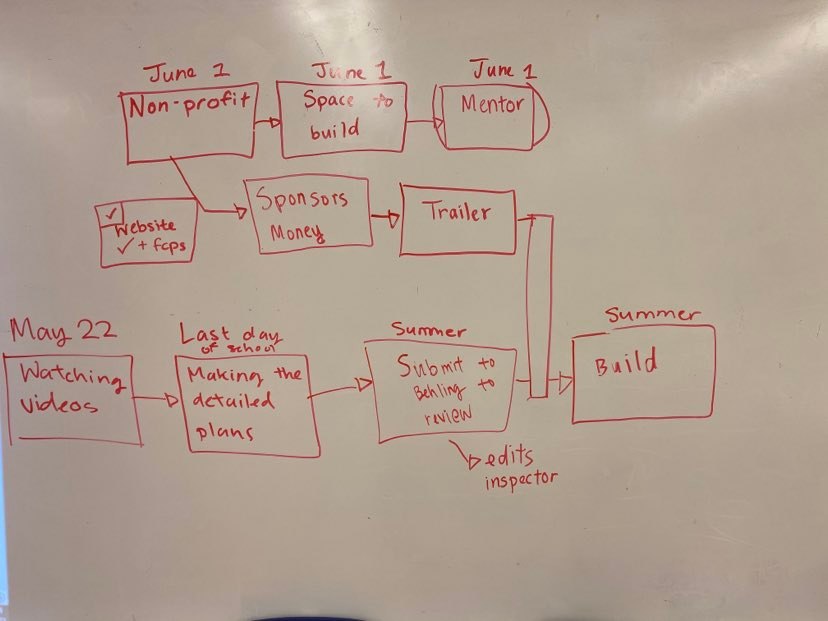 June 1
Non-profit
June 1
Space to
build
June 1
Mentor
✓
Website
✓ + fcps
Sponsors
Money
Trailer
May 22
Watching
videos
Last day
of school
Making the
detailed
plans
Summer
Submit to
Behling to
review
edits
inspector
Summer
Build